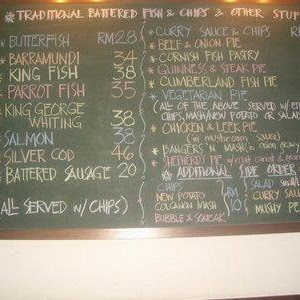 ★ TRADITIONAL BATTERED FISH & CHIPS & OTHER STUF
★ BUTTERFISH RM28
★ BARRAMUNDI 34
★ KING FISH 38
★ PARROT FISH 35
★ KING GEORGE WHITING 38
★ SALMON 38
★ SILVER COD 46
★ BATTERED SAUSAGE 20
(ALL SERVED W/ CHIPS)
★ CURRY SAUCE & CHIPS RM
★ BEEF & ONION PIE
★ CORNISH FISH PASTRY
★ GUINNESS & STEAK PIE
★ CUMBERLAND FISH PIE
★ VEGETARIAN PIE
(ALL OF THE ABOVE SERVED W/
CHIPS, MASH/NEW POTATO OR SALAD
★ CHICKEN & LEEK PIE
(in mushroom sauce)
★ BANGERS 'N MASH (in onion gravy
★ SHEPHERDS PIE w/ roast carrot &
★ ADDITIONAL SIDE ORDER
CHIPS
NEW POTATO
COLCANON MASH
BUBBLE & SQUEAK
RM 10
SALAD
CURRY SAU
MUSHY PE